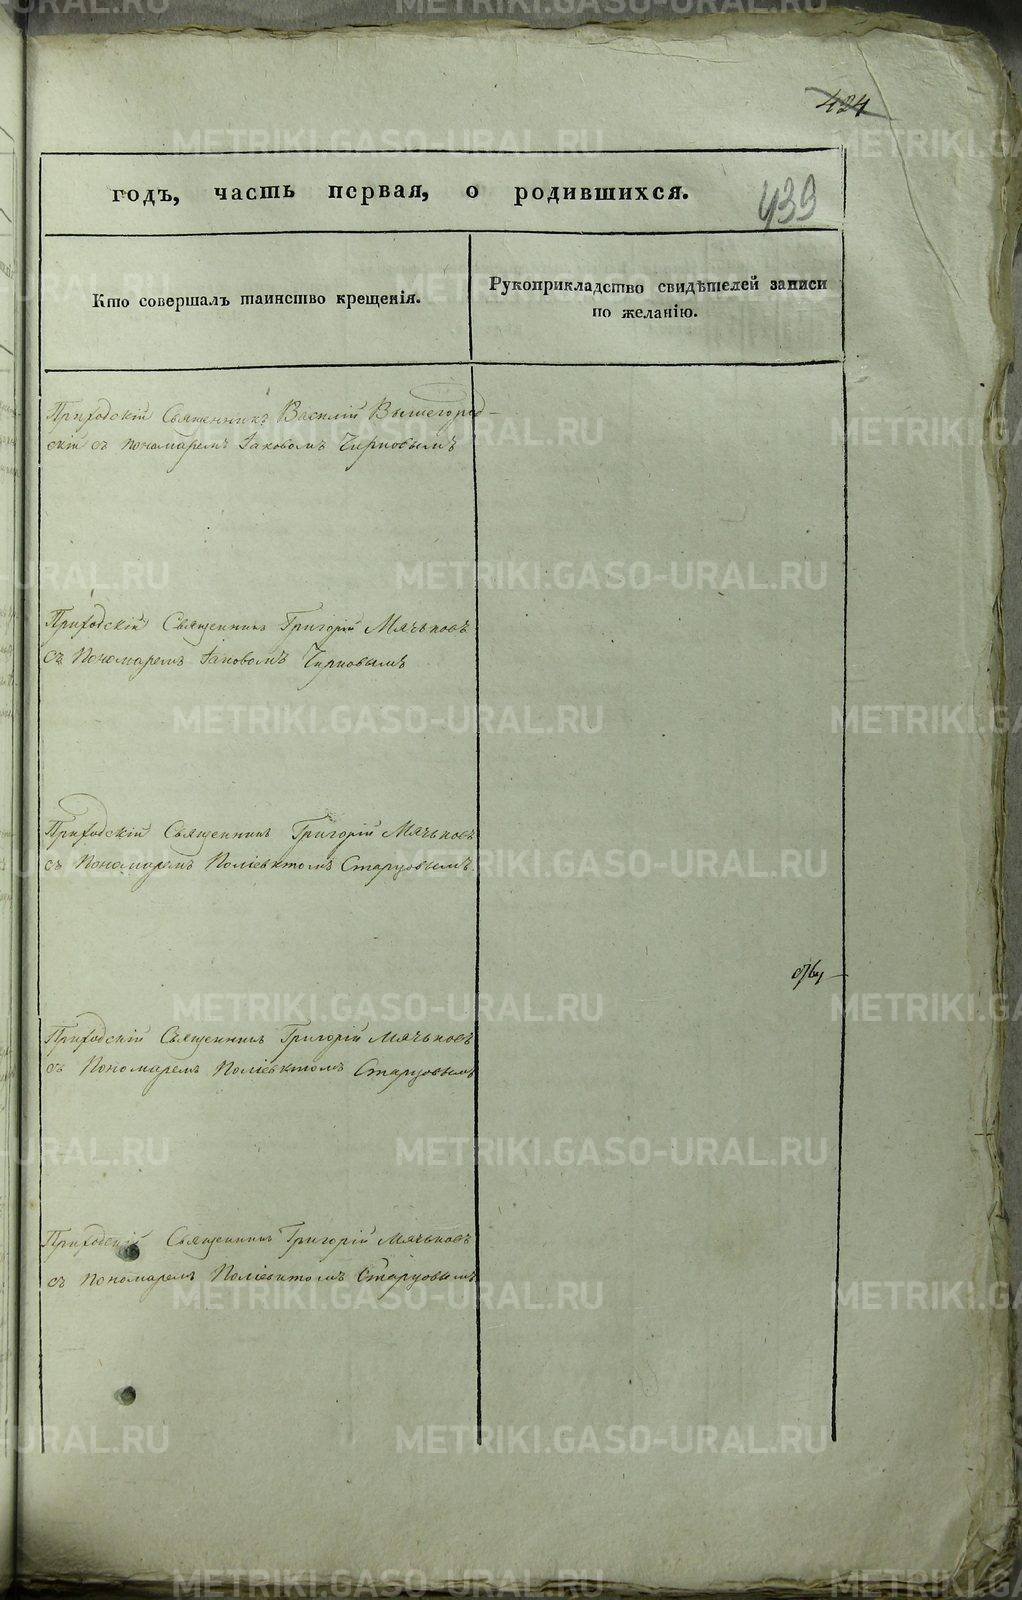 424
годъ, часть первая, о родившихся.
439
Кто совершалъ таинство крещенія.
Рукоприкладство свидѣтелей записи
по желанію.
Приходскій Священникъ Василій Вышегород-
скій съ пономаремъ Іаковомъ Чирковымъ
Приходскій Священникъ Григорій Мячьковъ
съ Пономаремъ Іаковомъ Чирковымъ
Приходскій Священникъ Григорій Мячьковъ
съ Пономаремъ Поліевктомъ Старцовымъ.
Приходскій Священникъ Григорій Мячьковъ
съ Пономаремъ Поліевктомъ Старцовымъ
Приходскій Священникъ Григорій Мячьковъ
съ пономаремъ Поліевктомъ Старцовымъ
METRIKI.GASO-URAL.RU